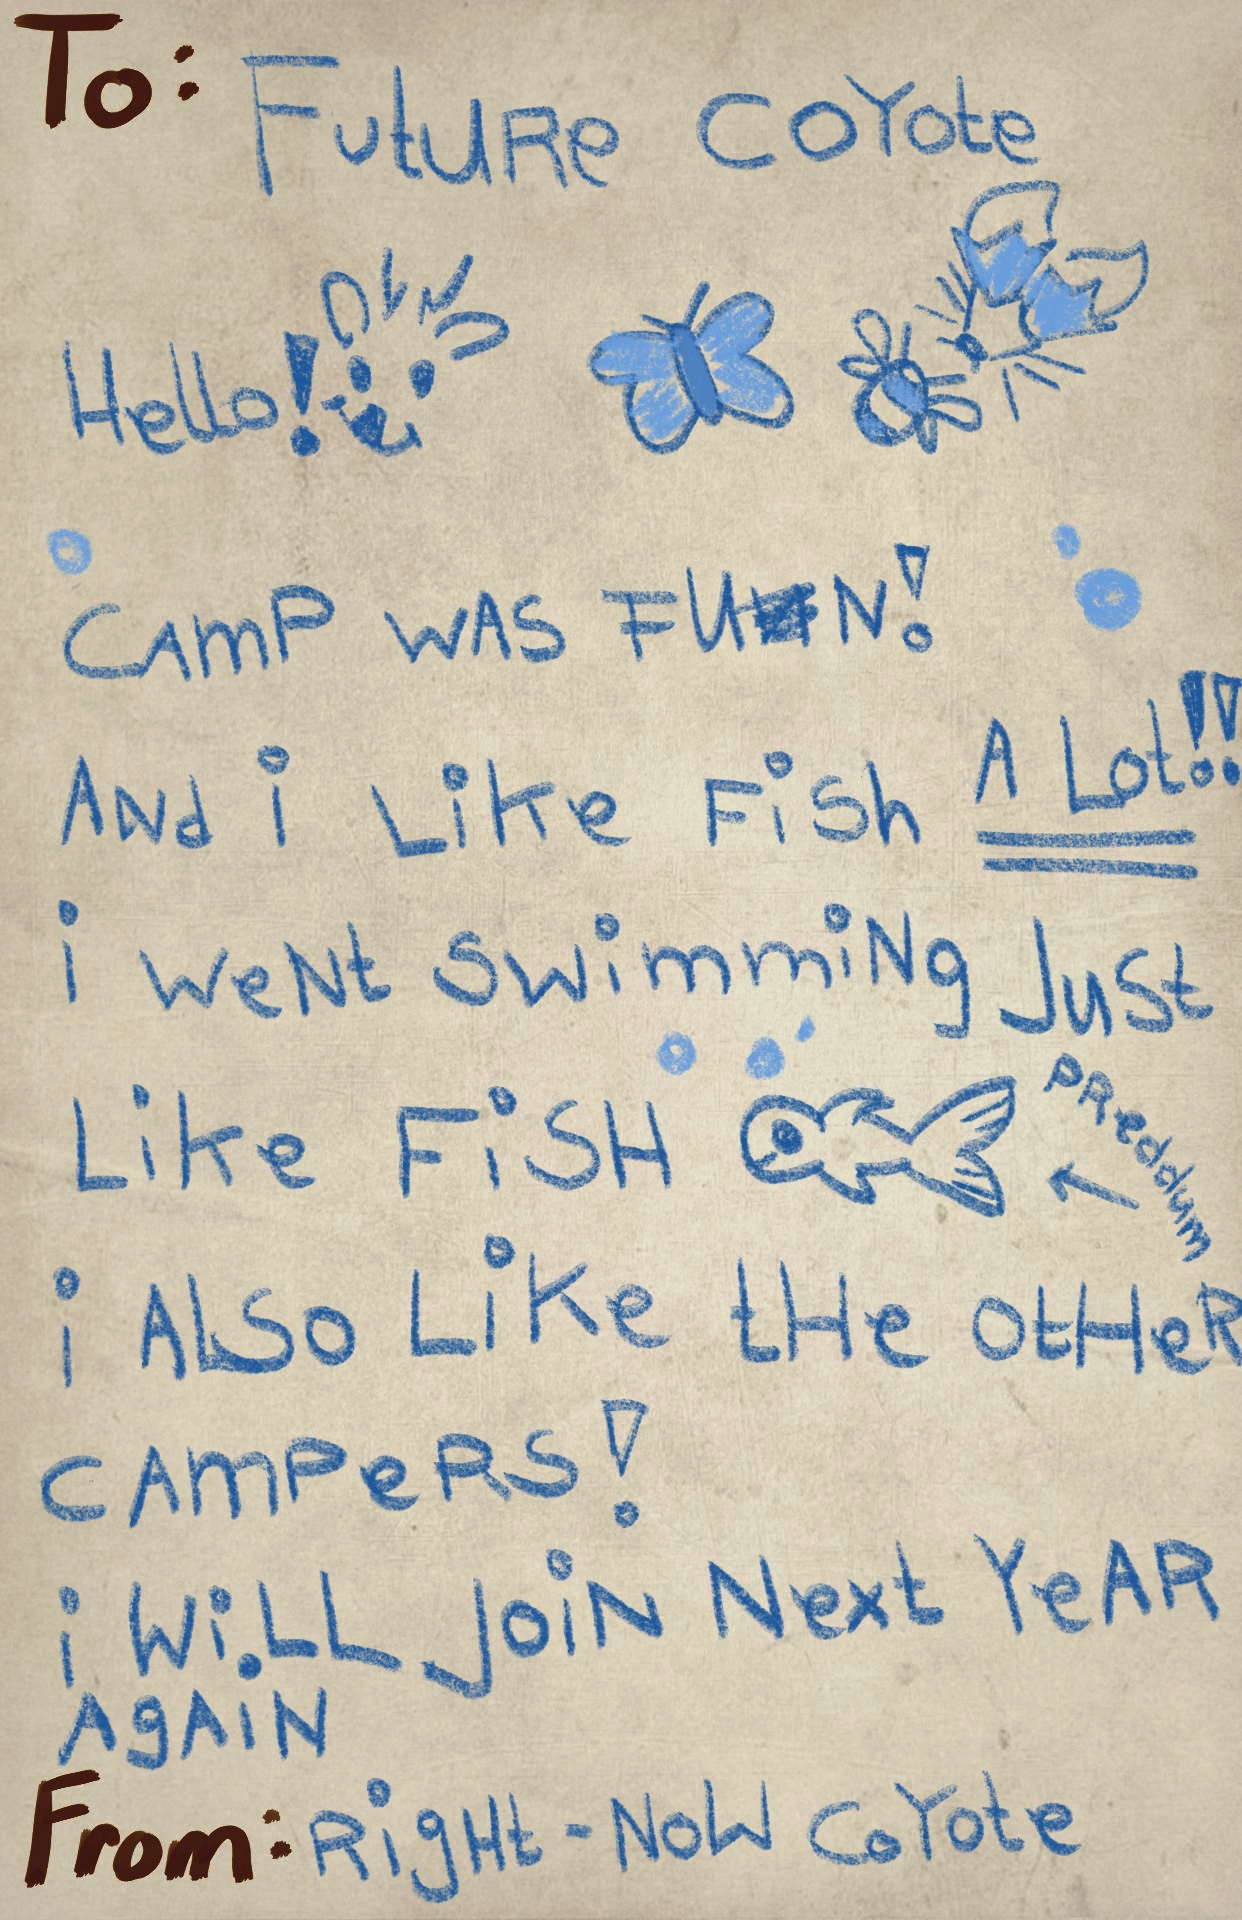 To: Future coyote
Hello!
CAMP WAS FUN!
ANd i Like FiSh A Lot!!
i weNt swimmiNg Just
Like FiSH
PReddum
i ALSo Like tHe otHeR
CAMPeRS!
i WiLL JoiN Next YeAR
AgAiN
From: RigHt-NoW CoYote